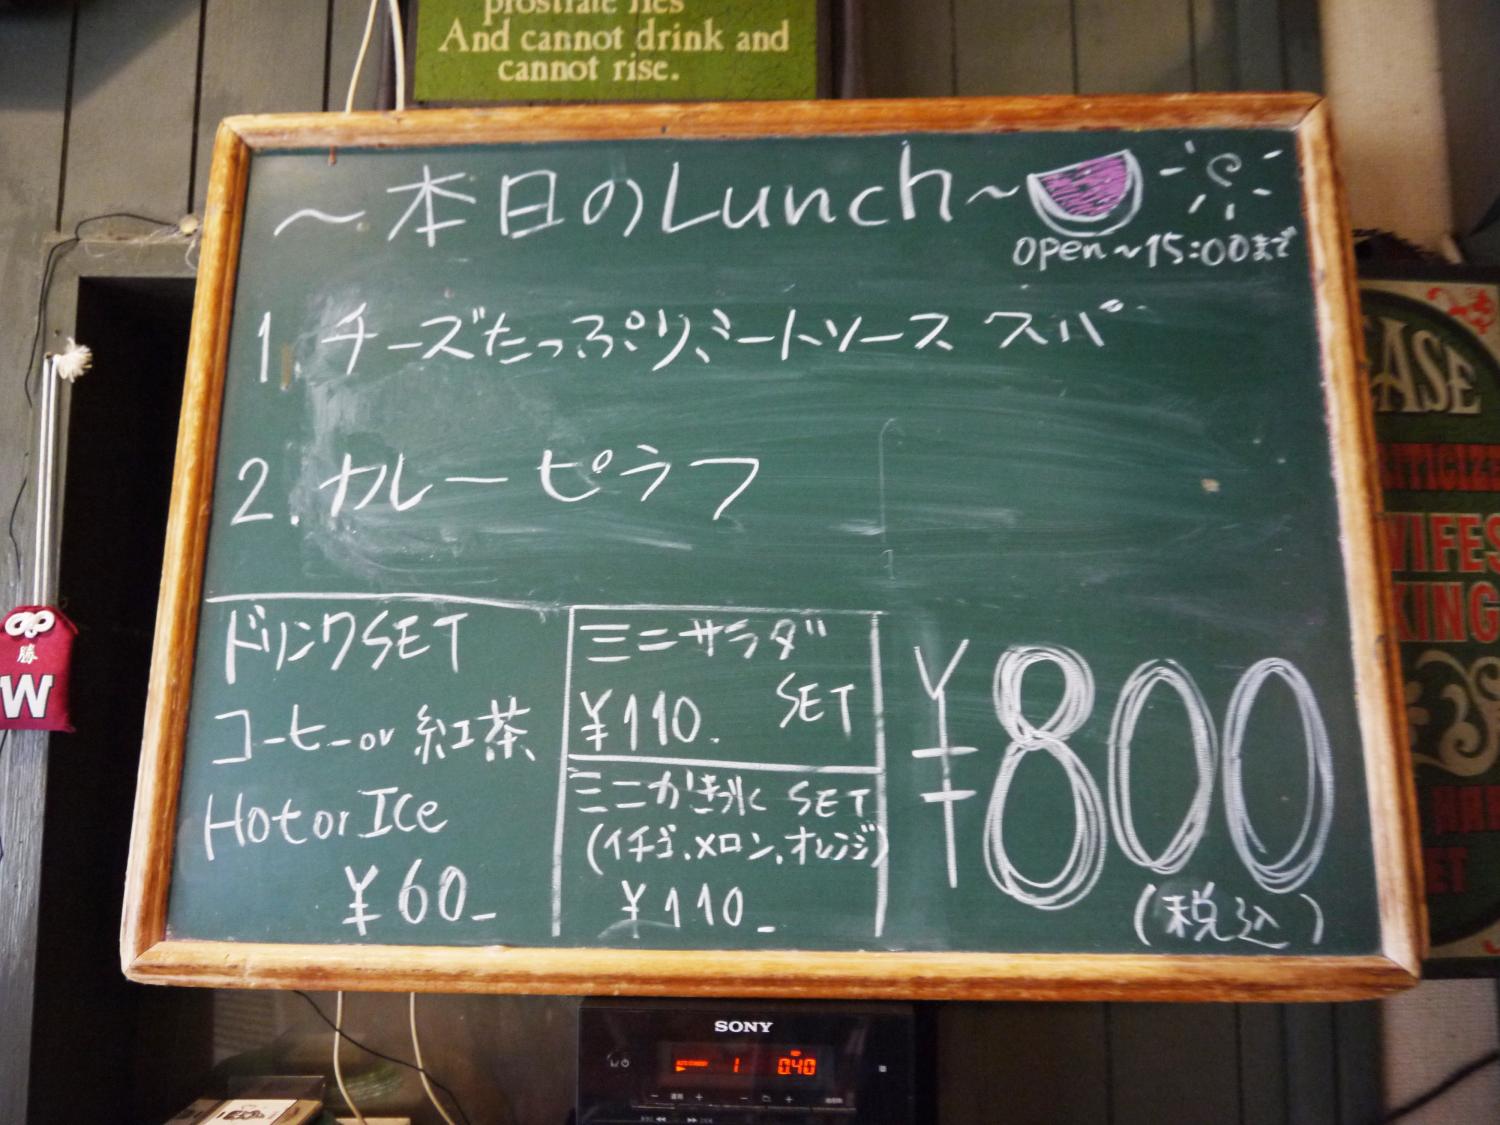 prostrate lies
And cannot drink and
cannot rise.
～本日のLunch～
open～15:00まで
1. チーズたっぷりミートソース スパ
2. カレーピラフ
ドリンクSET
コーヒーor 紅茶
Hot or Ice
¥60-
ミニサラダ
SET
¥110.
ミニかき氷 SET
(イチゴ.メロン.オレンジ)
¥110-
¥800
(税込)
勝
W
EASE
WIFES
KING
SONY
1 0:40